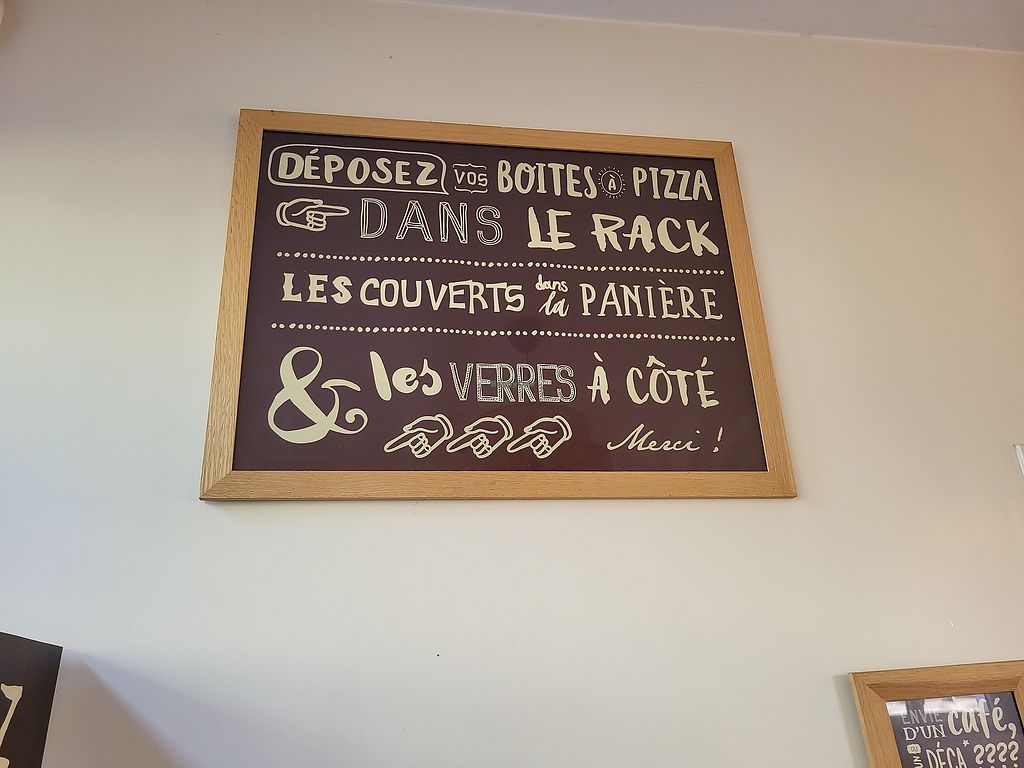 DÉPOSEZ VOS BOITES À PIZZA
DANS LE RACK
LES COUVERTS dans la PANIÈRE
& les VERRES À CÔTÉ
Merci !
ENVIE D'UN café,
OU UN DÉCA* ????